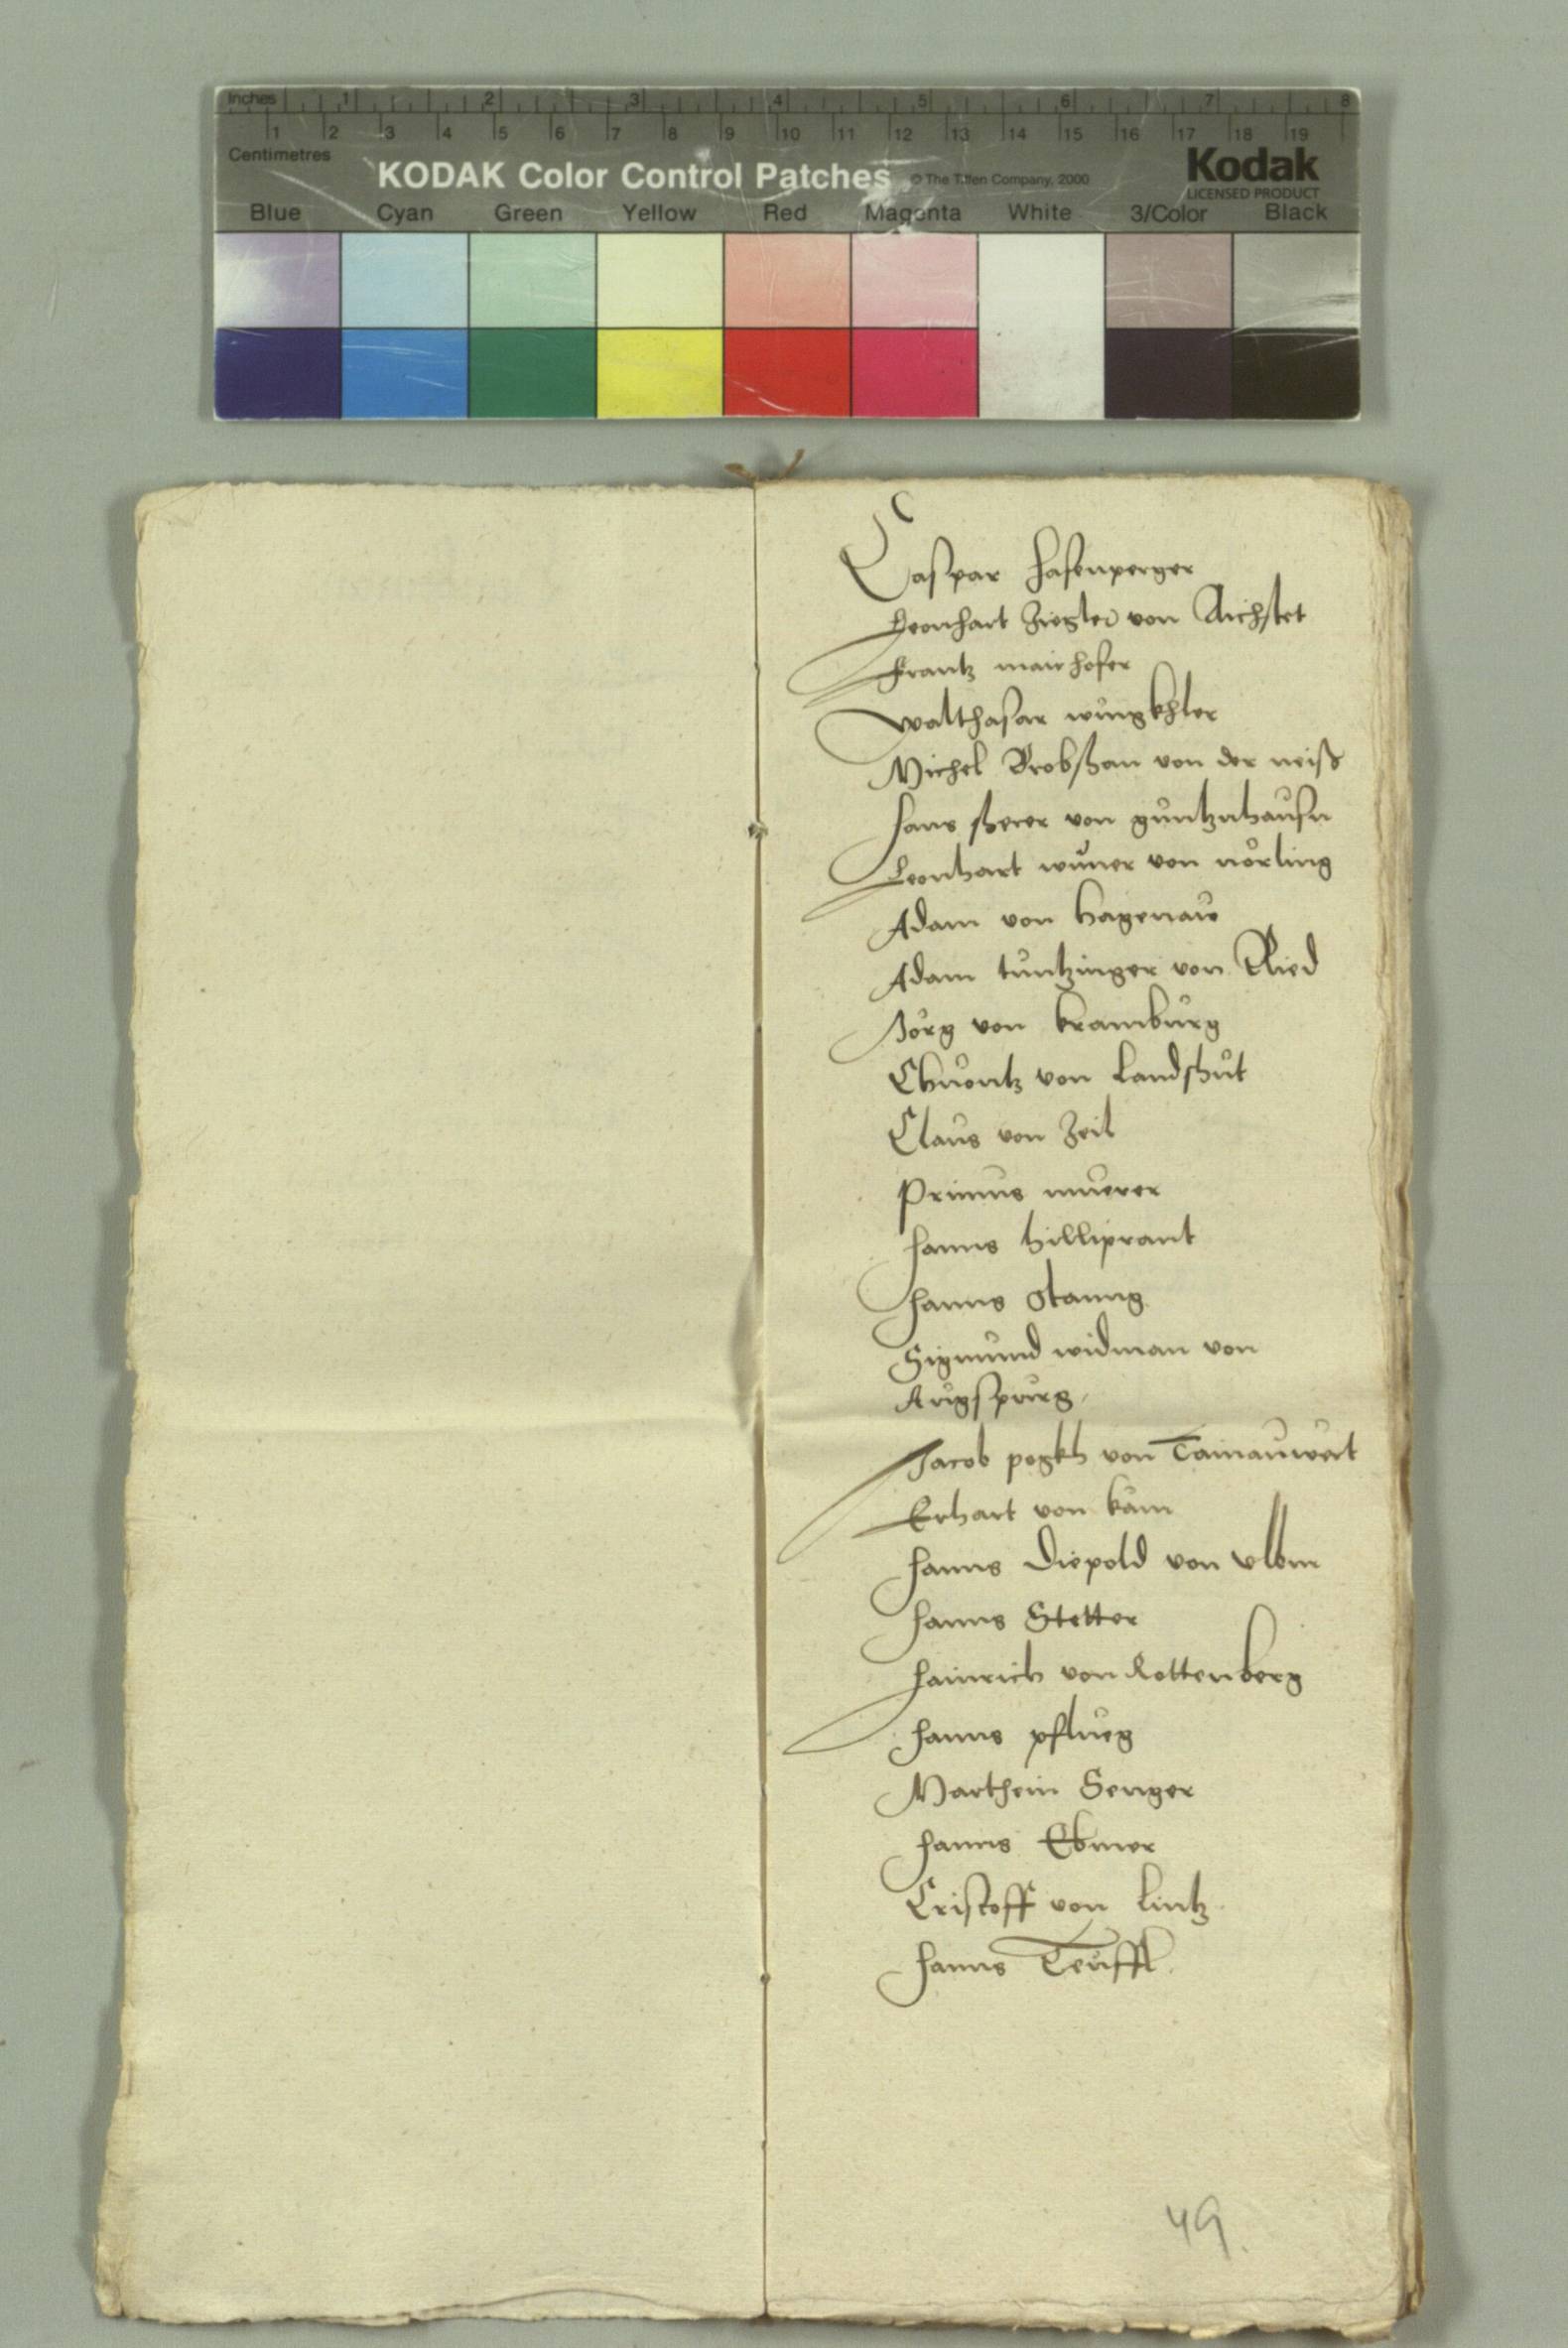 Inches 1 2 3 4 5 6 7 8
1 2 3 4 5 6 7 8 9 10 11 12 13 14 15 16 17 18 19
Centimetres
KODAK Color Control Patches © The Tiffen Company, 2000
Kodak
LICENSED PRODUCT
Blue Cyan Green Yellow Red Magenta White 3/Color Black
Caspar hasenperger
Leonhart Ziegler von Aichstet
Frantz mairhofer
Walthasar wingkhler
Michel von der neiß
Hans von guntznhausn
Leonhart von nörling
Adam von hagenaw
Adam tuntzinger von Ried
Jörg von kramburg
von Landshut
Claus von Zeil
Primus
Hanns hilliprant
Hanns Stanng
Sigmund widman von
Augspurg
Jacob pogkh von
Erhart von kam
Hanns Diepold von Ulbm
Hanns Stetter
Hainrich von Rottenberg
Hanns pflueg
Marthein Senger
Hanns Ebmer
Cristoff von Lintz
Hanns Teuffl
49